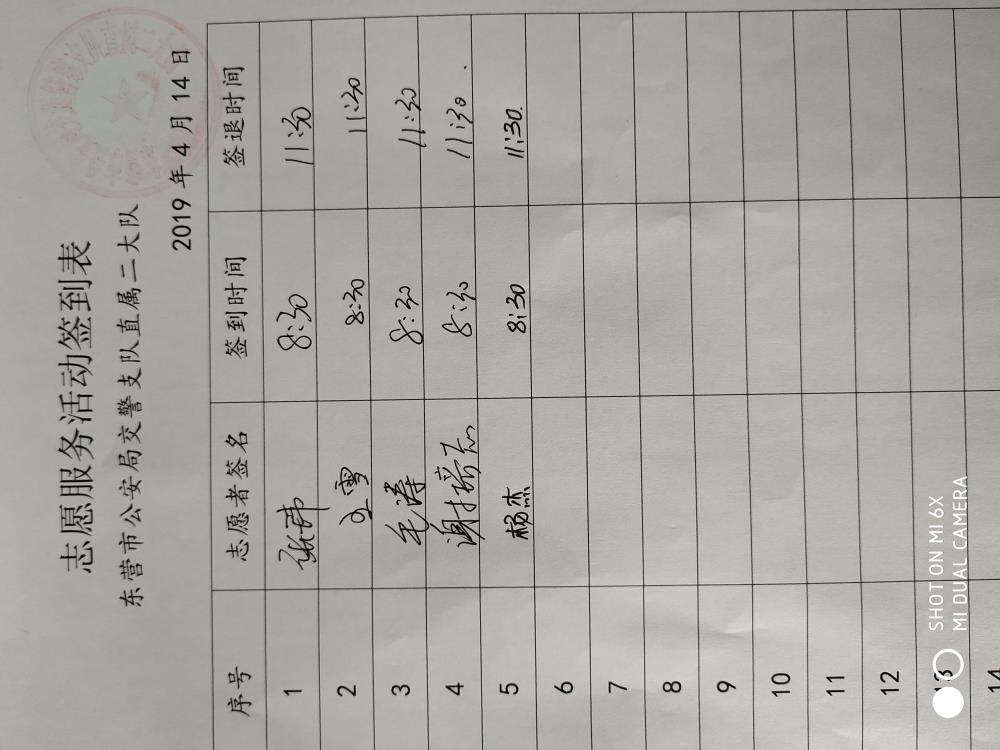 志愿服务活动签到表
东营市公安局交警支队直属二大队
2019 年 4 月 14 日
序号 志愿者签名 签到时间 签退时间
1 张玮 8:30 11:30
2 王雪 8:30 11:30
3 毛涛 8:30 11:30
4 谢 8:30 11:30
5 杨杰 8:30 11:30
6
7
8
9
10
11
12
13
14
SHOT ON MI 6X
MI DUAL CAMERA